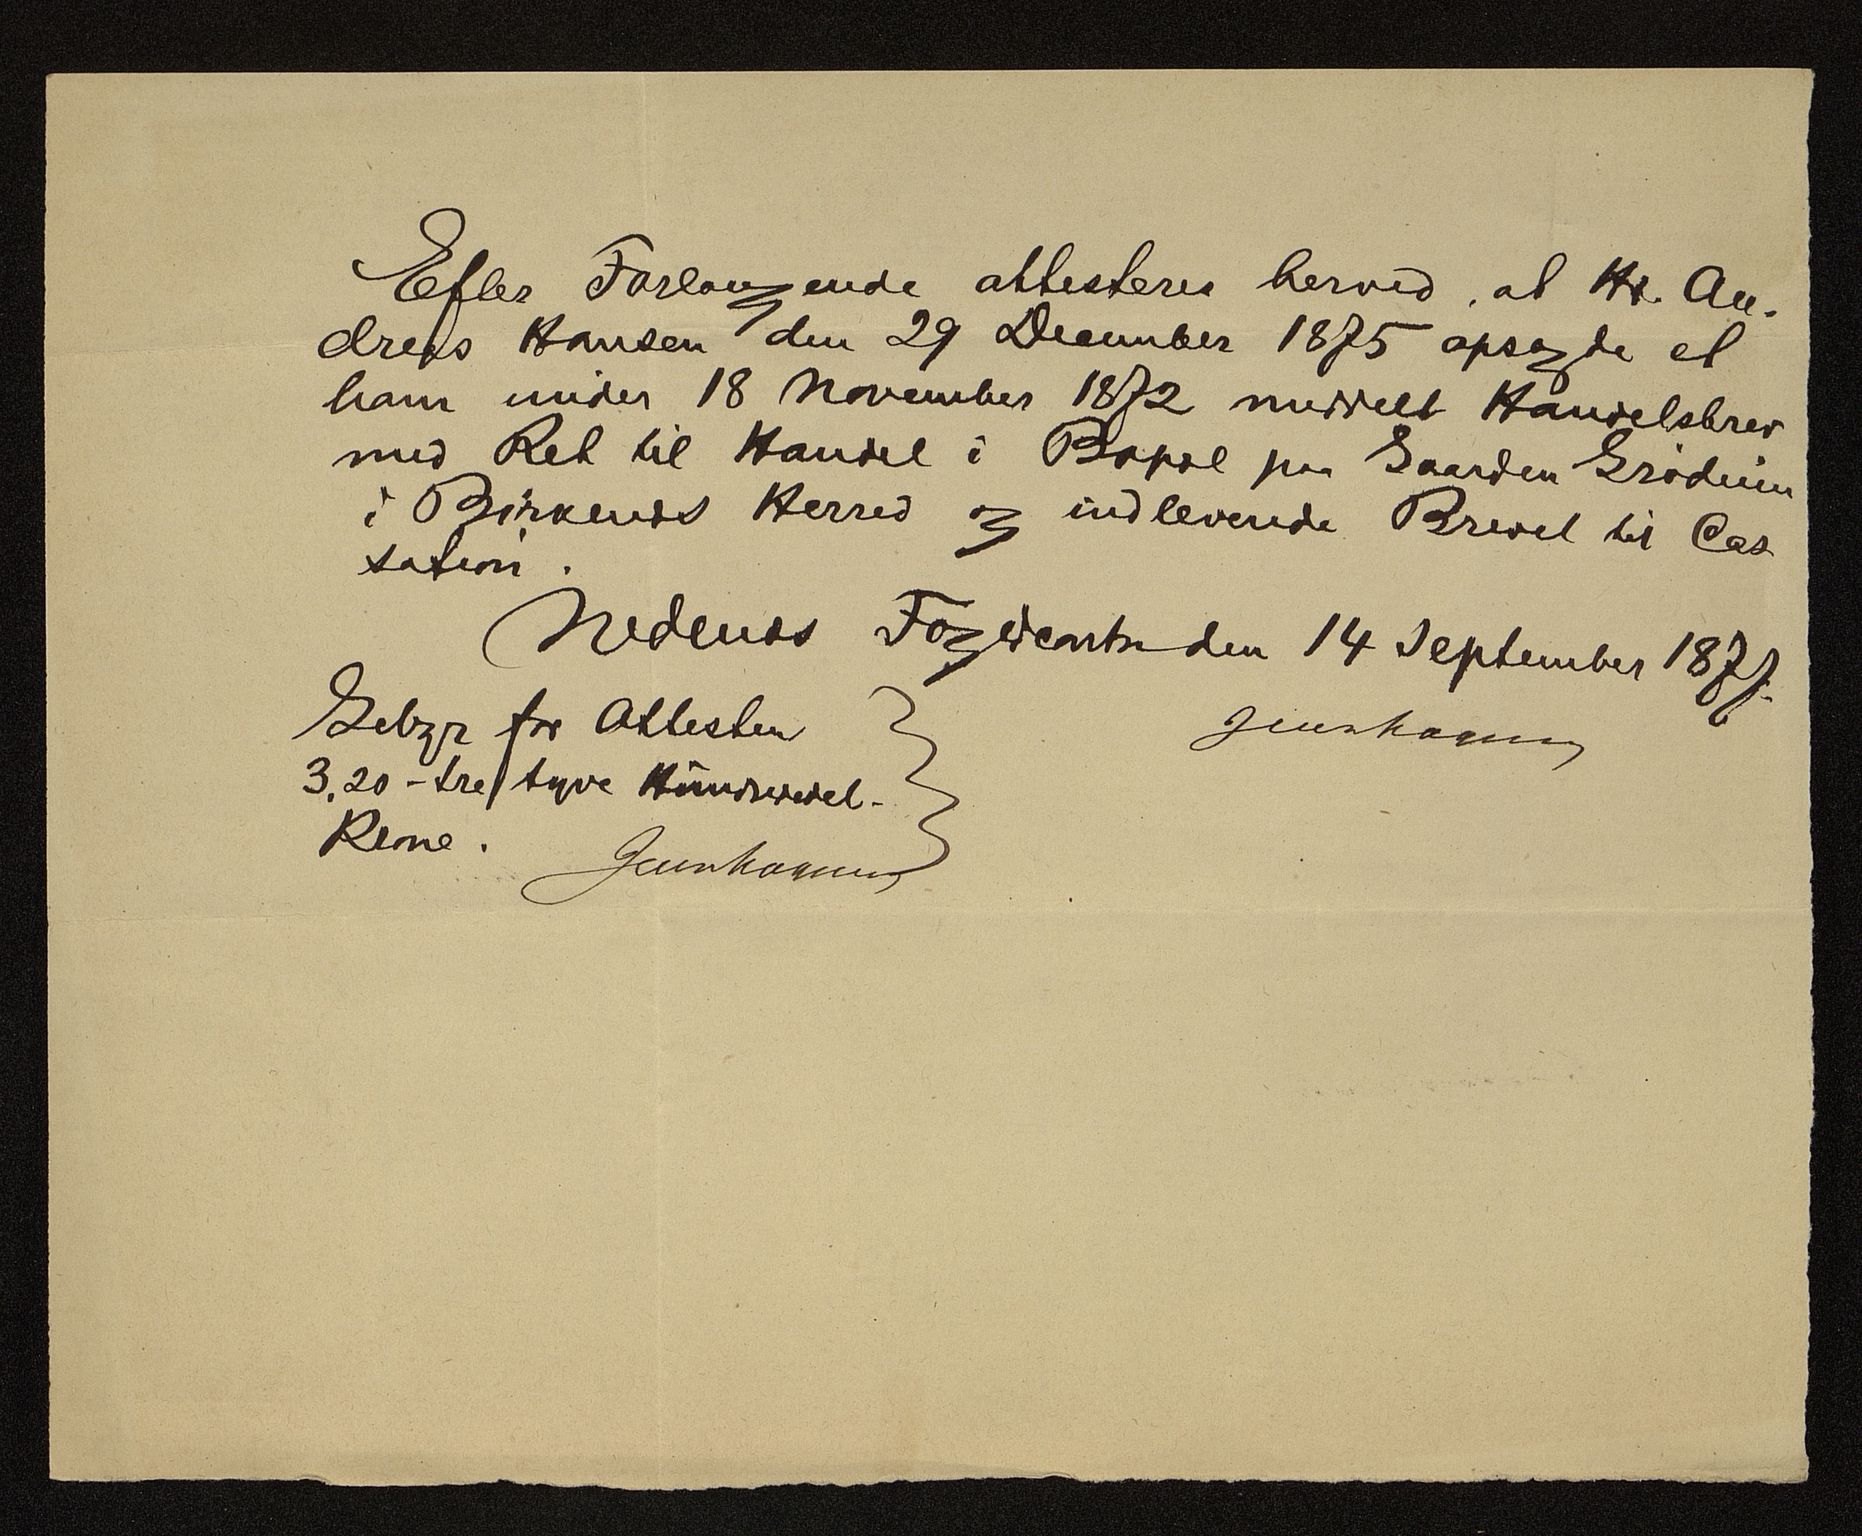 Efter Forlangende attesteres herved, at Hr. An-
dreas Hansen den 29 December 1875 opsagde et
ham under 18 November 1872 meddelt Handelsbrev
med Ret til Handel i Bopæl paa Gaarden
i Birkenæs Herred og indleverede Brevet til Cas
sation.
Nedenæs Fogderi den 14 September 1877.
Gebyr for Attesten
3,20 - tre tyve Hundrededel-
Krone.